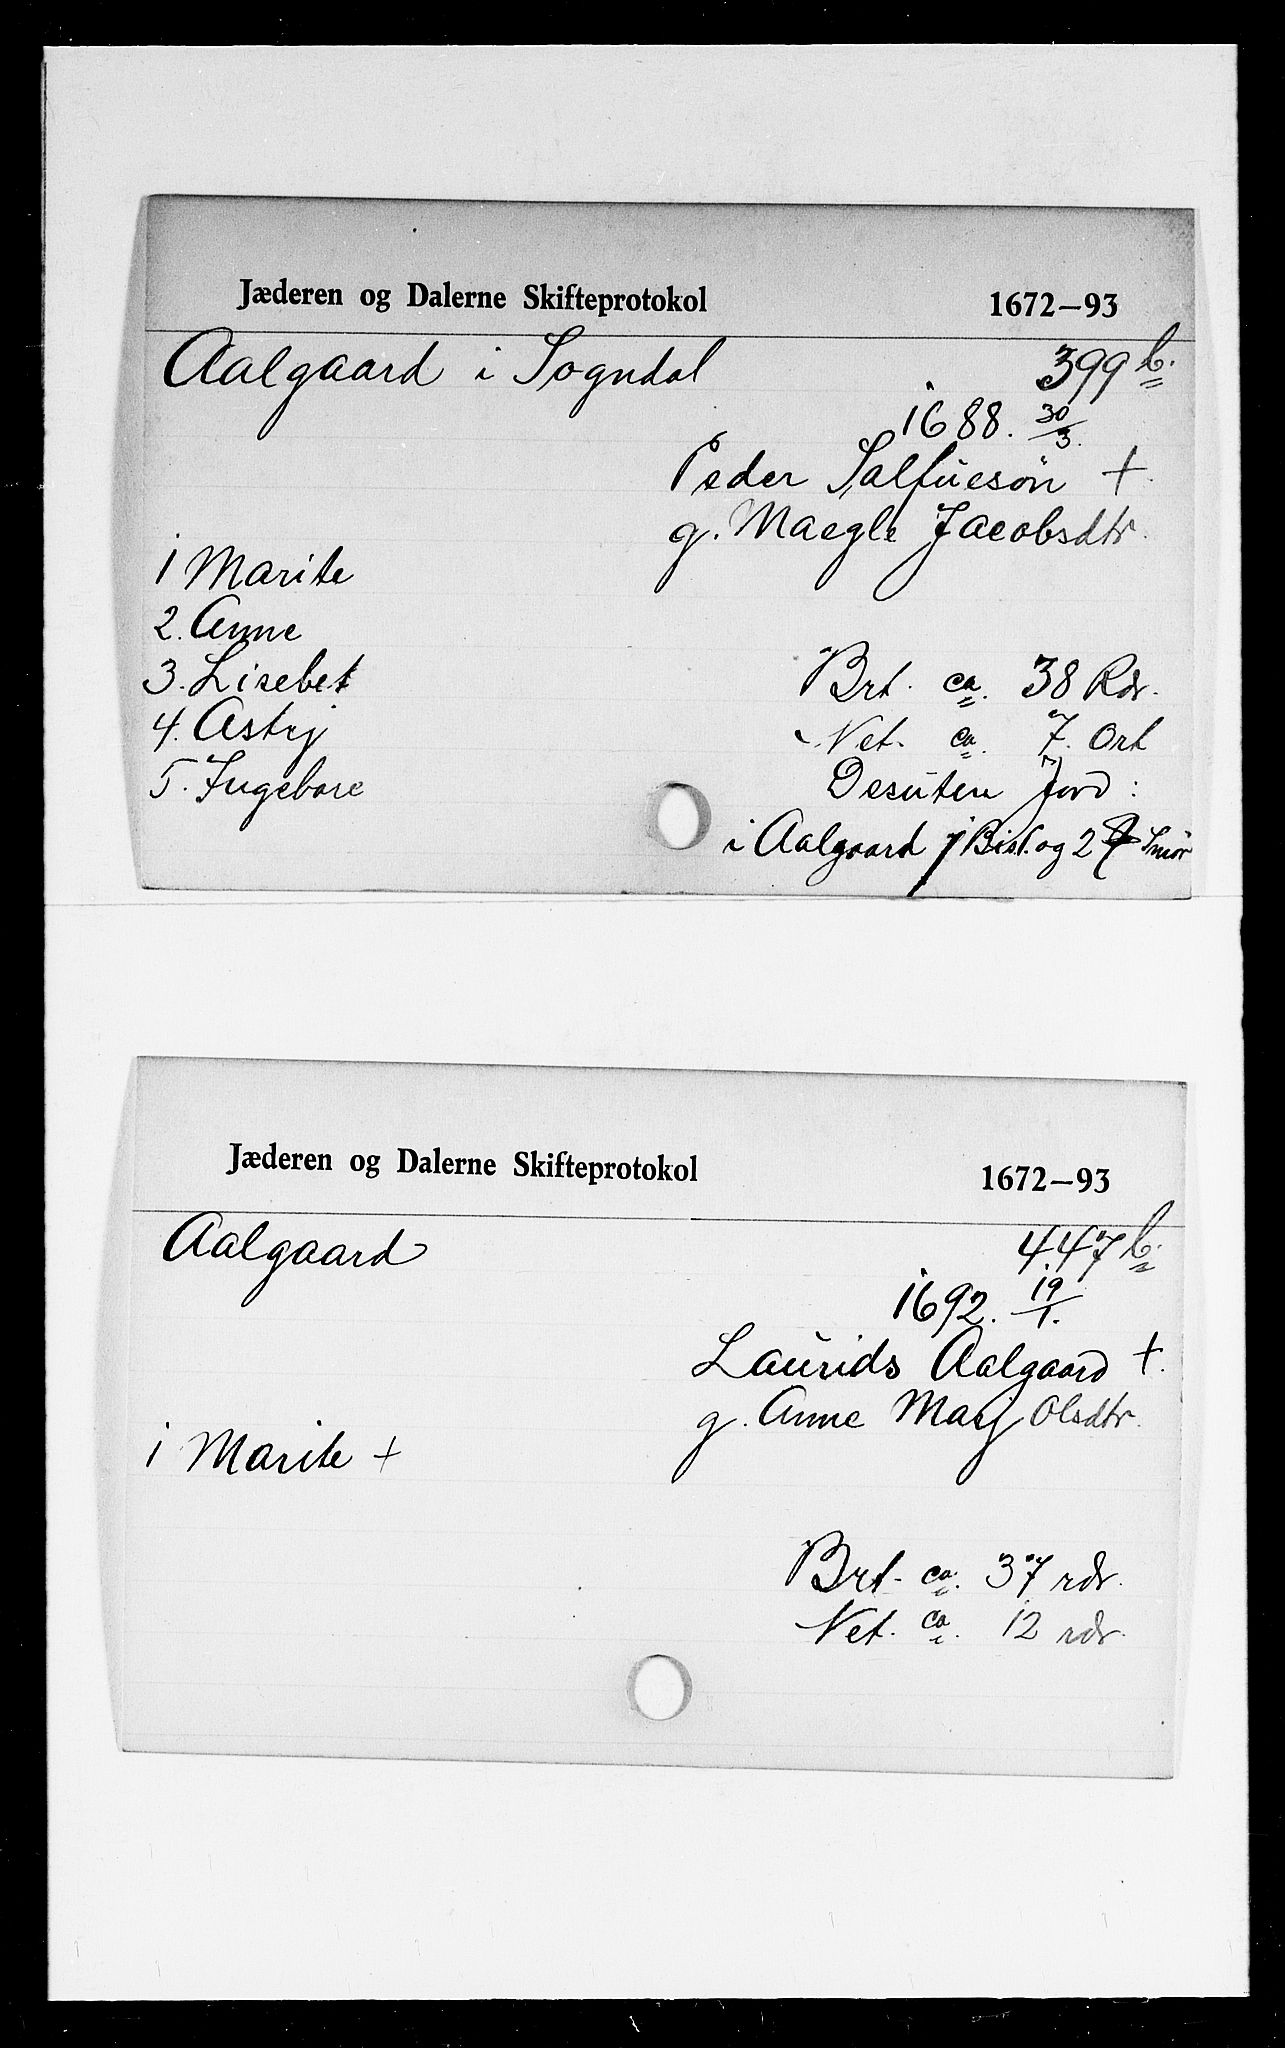 Jæderen og Dalerne Skifteprotokol 1672–93
Aalgaard i Sogndal 399 b.
1688. 30/3.
Peder Salfuesön +
g. Maegle Jacobsdtr.
1 Marite
2. Anne
3. Lisebet
4. Astrj
5. Ingebore
Brt. ca. 38 Rdr.
Net. ca. 7. Ort
Desuten Jord:
i Aalgaard 1 Bisl. og 2 Smör
Jæderen og Dalerne Skifteprotokol 1672–93
Aalgaard 447 b.
1692. 19/1.
Laurids Aalgaard +.
g. Anne Marj Olsdtr.
1 Marite +
Brt. ca. 37 rdr.
Net. ca. 12 rdr.